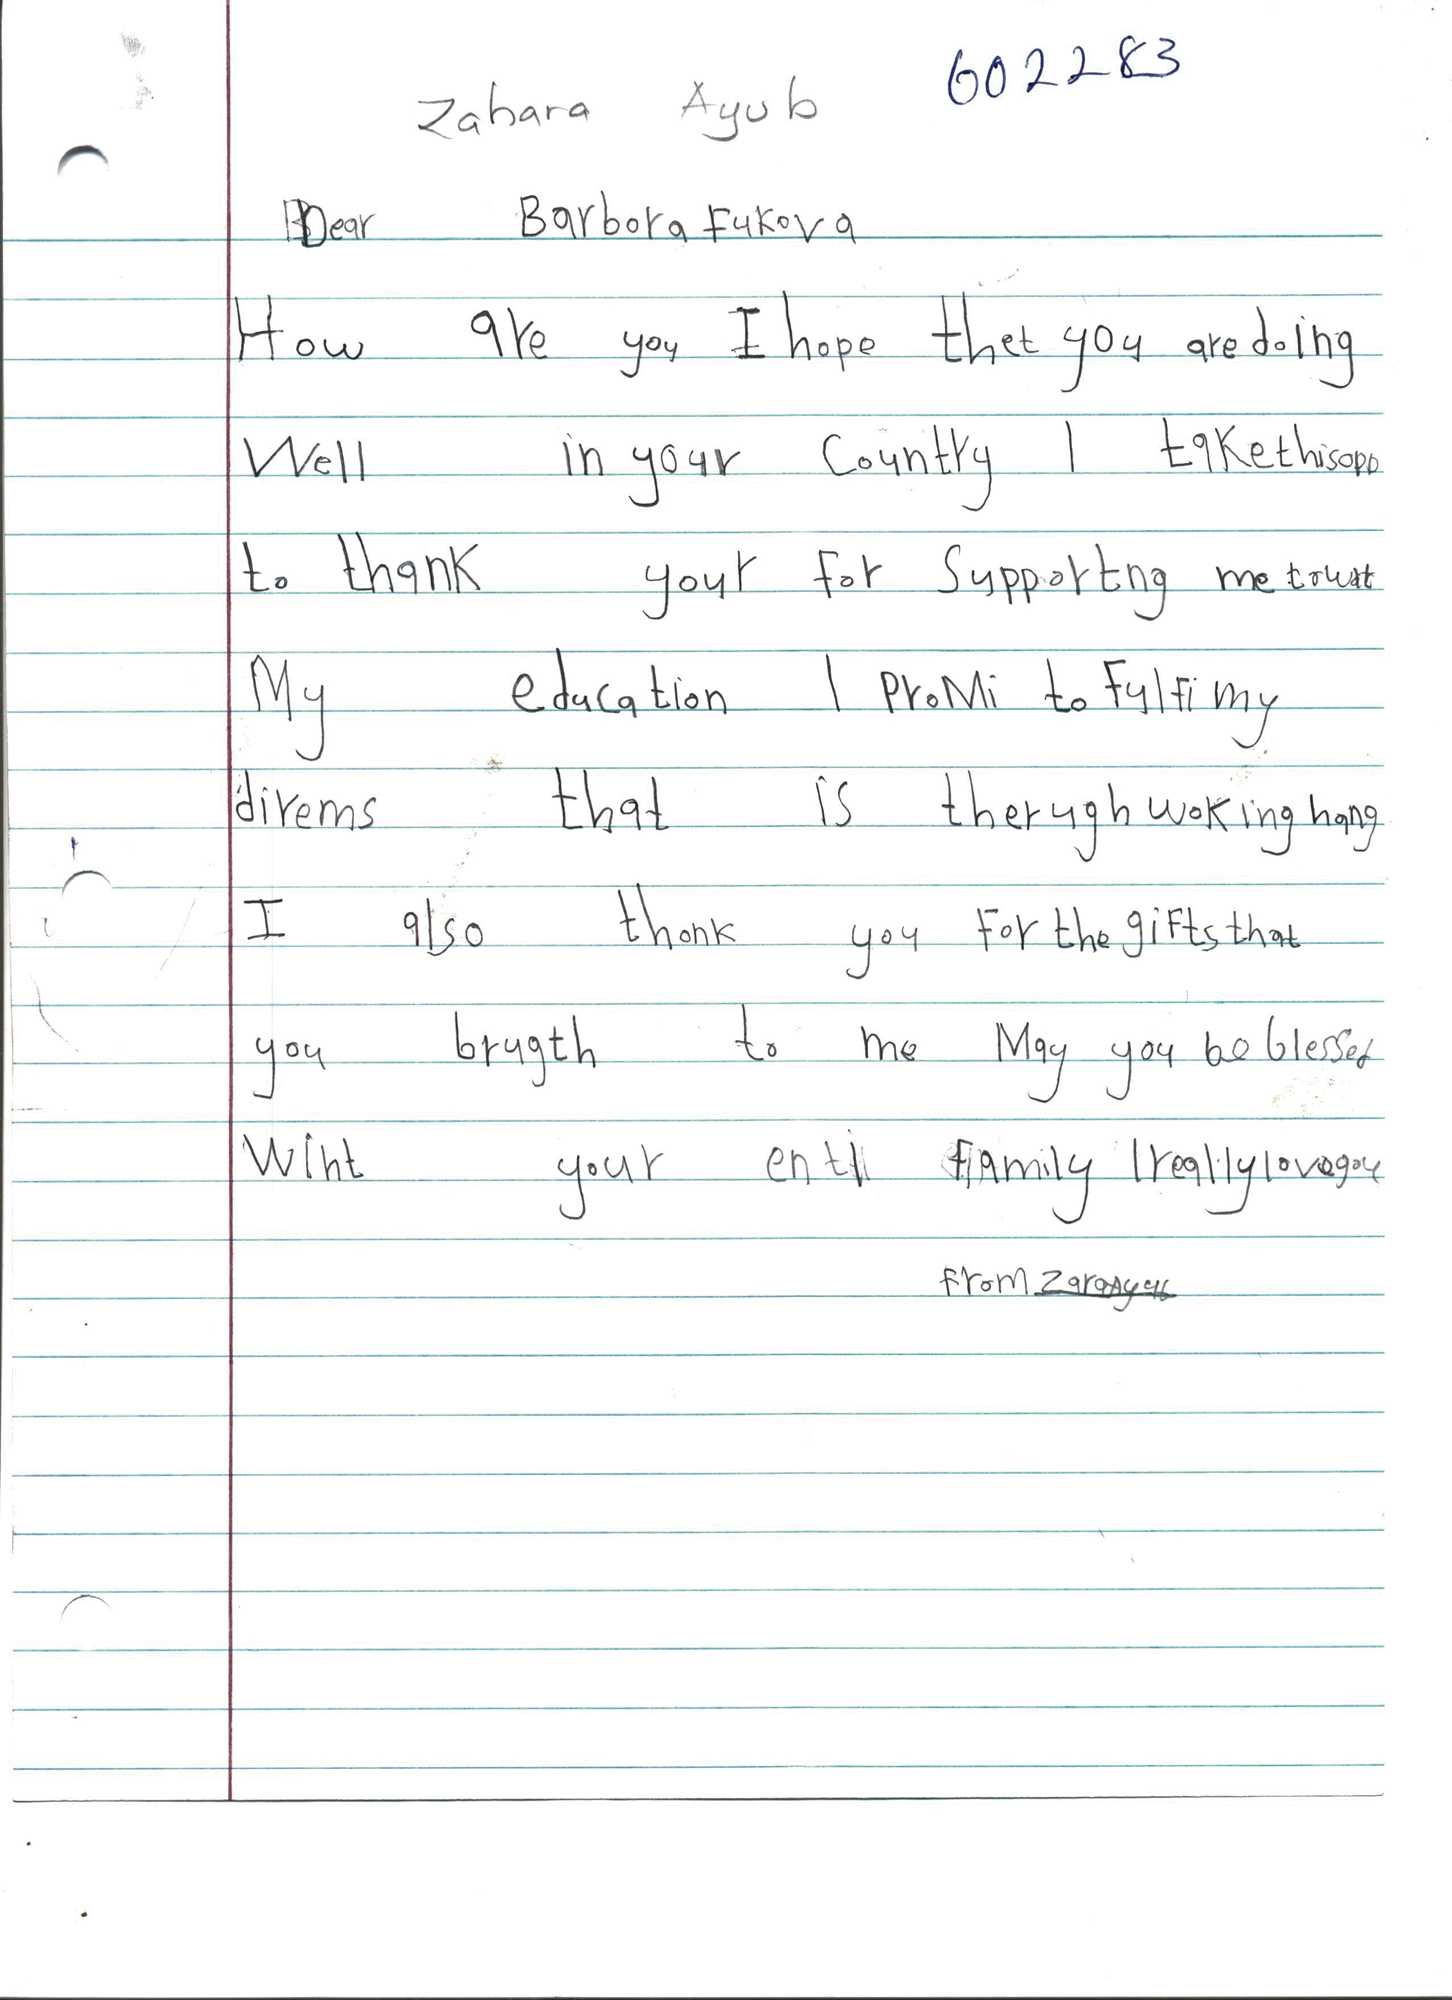 602283
Zahara Ayub
Dear Barbora Fukova
How are you I hope thet you are doing
Well in your Country I take this opp
to thank your for Supportng me
My education I ProMi to Fulfi my
direms that is therugh woking hang
I also thonk you For the giFts that
you brugth to me May you be blessed
Wiht your enti family I realily love you
From Zara Ayub